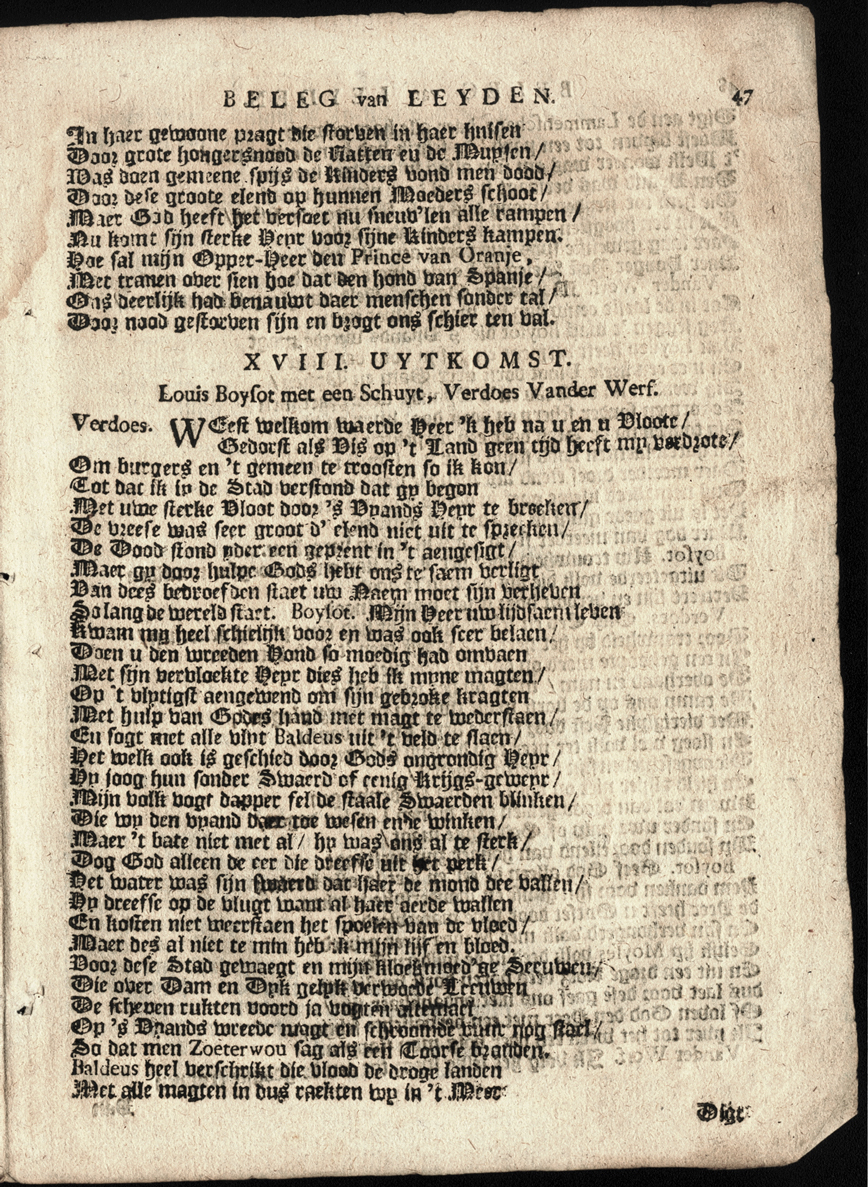 BELEG van LEYDEN. 47
In haer gewoone pragt die storven in haer huisen
Door grote hongersnood de Katten en de Muysen /
Was doen gemeene spijs de Kinders vond men dood /
Door dese groote elend op hunnen Moeders schoot /
Maer God heeft het versoet nu sneuv'len alle rampen /
Nu komt sijn sterke Heyr voor sijne Kinders kampen.
Hoe sal mijn Opper-Heer den Prince van Oranje,
Met tranen over sien hoe dat den hond van Spanje /
Ons deerlijk had benauwt daer menschen sonder tal /
Door nood gestorven sijn en brogt ons schier ten val.
XVIII. UYTKOMST.
Louis Boysot met een Schuyt, Verdoes Vander Werf.
Verdoes. WEest welkom waerde Heer 'k heb na u en u Vloote /
Gedorst als Vis op 't Land geen tijd heeft my verdrote /
Om burgers en 't gemeen te troosten so ik kon /
Tot dat ik in de Stad verstond dat gy begon
Met uwe sterke Vloot door 's Vyands Heyr te breeken /
De vreese was seer groot d' elend niet uit te spreeken /
De Dood stond yder een geprent in 't aengesigt /
Maer gy door hulpe Gods hebt ons te saem verligt
Van dees bedroefden staet uw Naem moet sijn verheven
So lang de wereld staet. Boysot. Mijn Heer uw lijdsaem leven
Kwam my heel schielijk voor en was ook seer belaen /
Doen u den wreeden Hond so moedig had omvaen
Met sijn vervloekte Heyr dies heb ik myne magten /
Op 't vlytigst aengewend om sijn gebroke kragten
Met hulp van Godes hand met magt te wederstaen /
En sogt met alle vlyt Baldeus uit 't veld te slaen /
Het welk ook is geschied door Gods ongrondig Heyr /
Hy joog hun sonder Swaerd of eenig Krijgs-geweyr /
Mijn volk vogt dapper fel de staale Swaerden blinken /
Die wy den vyand daer toe wesen en de winken /
Maer 't bate niet met al / hy was ons al te sterk /
Dog God alleen de eer die dreefse uit het perk /
Het water was sijn swaerd dat haer de mond dee vallen /
Hy dreefse op de vlugt want al haer aerde wallen
En kosten niet weerstaen het spoelen van de vloed /
Maer des al niet te min heb ik mijn lijf en bloed.
Voor dese Stad gewaegt en mijn kloekmoed'ge Seeuwen /
Die over Dam en Dyk gelyk verwoede Leeuwen
De schepen rukten voord ja vogten altemael
Op 's Vyands wreede magt en schroomde vuur nog stael /
So dat men Zoeterwou sag als een Toorse branden.
Baldeus heel verschrikt die vlood de droge landen
Met alle magten in dus raekten wy in 't Meer
Digt